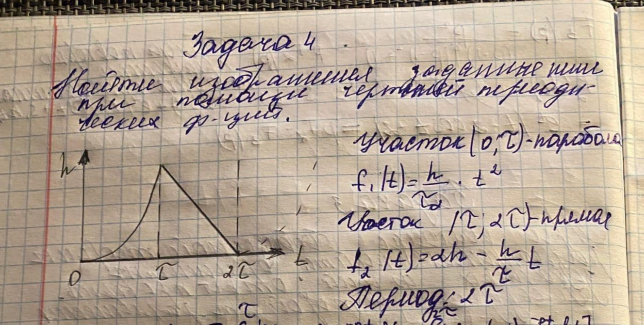 Задача 4
Найти изображения заданные ниже
при помощи чертежей периоди-
ческих ф-ций.
Участок (0, τ) - парабола
f₁(t) = h/τ² · t²
Участок (τ; 2τ) - прямая
f₂(t) = 2h - h/τ t
Период: 2τ
h
0 τ 2τ t